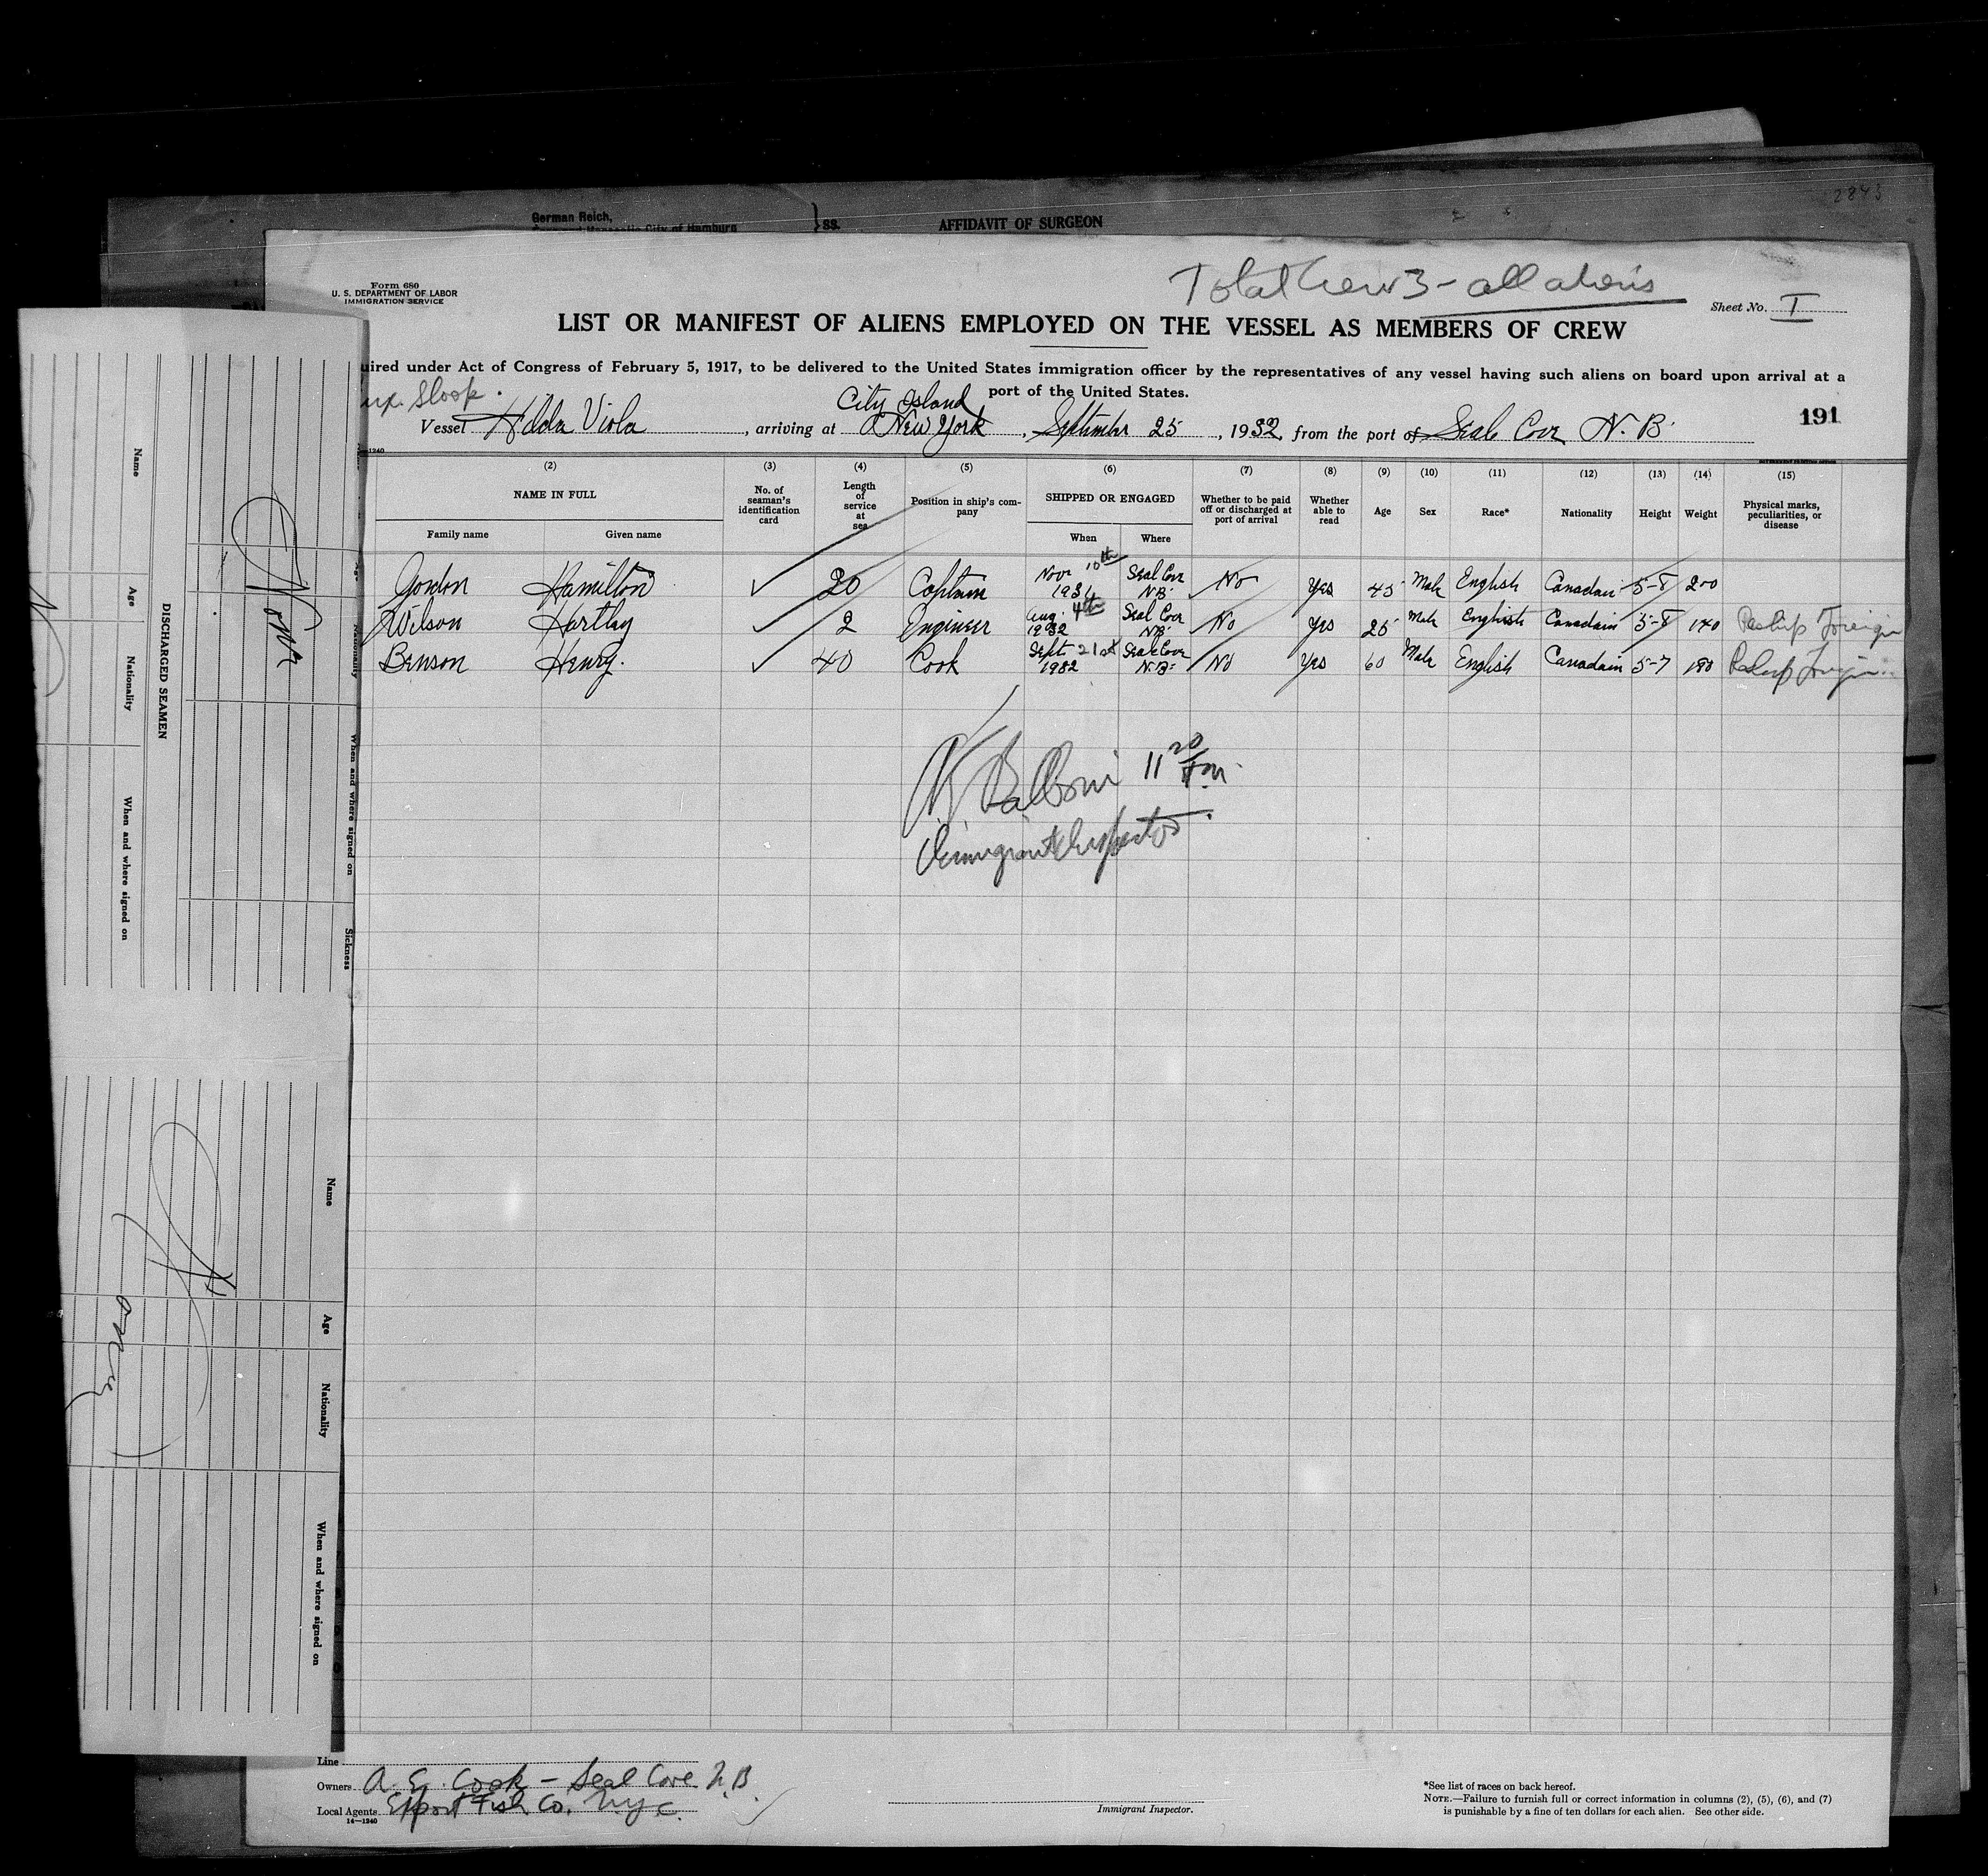 2843
German Reich,
} ss. AFFIDAVIT OF SURGEON
Total Crew 3 - all aliens
Form 680
U. S. DEPARTMENT OF LABOR
IMMIGRATION SERVICE
Sheet No. I
LIST OR MANIFEST OF ALIENS EMPLOYED ON THE VESSEL AS MEMBERS OF CREW
uired under Act of Congress of February 5, 1917, to be delivered to the United States immigration officer by the representatives of any vessel having such aliens on board upon arrival at a
port of the United States.
Sloop.
City Island
191
Vessel Hilda Viola, arriving at New York, September 25, 1932, from the port of Seal Cove N. B.
(2) (3) (4) (5) (6) (7) (8) (9) (10) (11) (12) (13) (14) (15)
NAME IN FULL No. of seaman's identification card Length of service at sea Position in ship's company SHIPPED OR ENGAGED Whether to be paid off or discharged at port of arrival Whether able to read Age Sex Race* Nationality Height Weight Physical marks, peculiarities, or disease
Family name Given name When Where
Gordon Hamilton ✓ 20 Captain Nov 10th 1931 Seal Cove N.B. No Yes 45 Male English Canadain 5-8 200
Wilson Hartley ✓ 2 Engineer Aug. 4th 1932 Seal Cove N.B. No Yes 25 Male English Canadain 5-8 140 Foreign
Benson Henry. ✓ 40 Cook Sept 21st 1932 Seal Cove N.B. No Yes 60 Male English Canadain 5-7 180
Balboni 11 20
Immigrant Inspector
Line
Owners A. E. Cook - Seal Cove N.B.
Local Agents Export Fish Co. NYC.
14—1240
Immigrant Inspector.
*See list of races on back hereof.
NOTE.—Failure to furnish full or correct information in columns (2), (5), (6), and (7)
is punishable by a fine of ten dollars for each alien. See other side.
DISCHARGED SEAMEN
Name Age Nationality When and where signed on
None
Age Nationality When and where signed on Sickness
Name Age Nationality When and where signed on